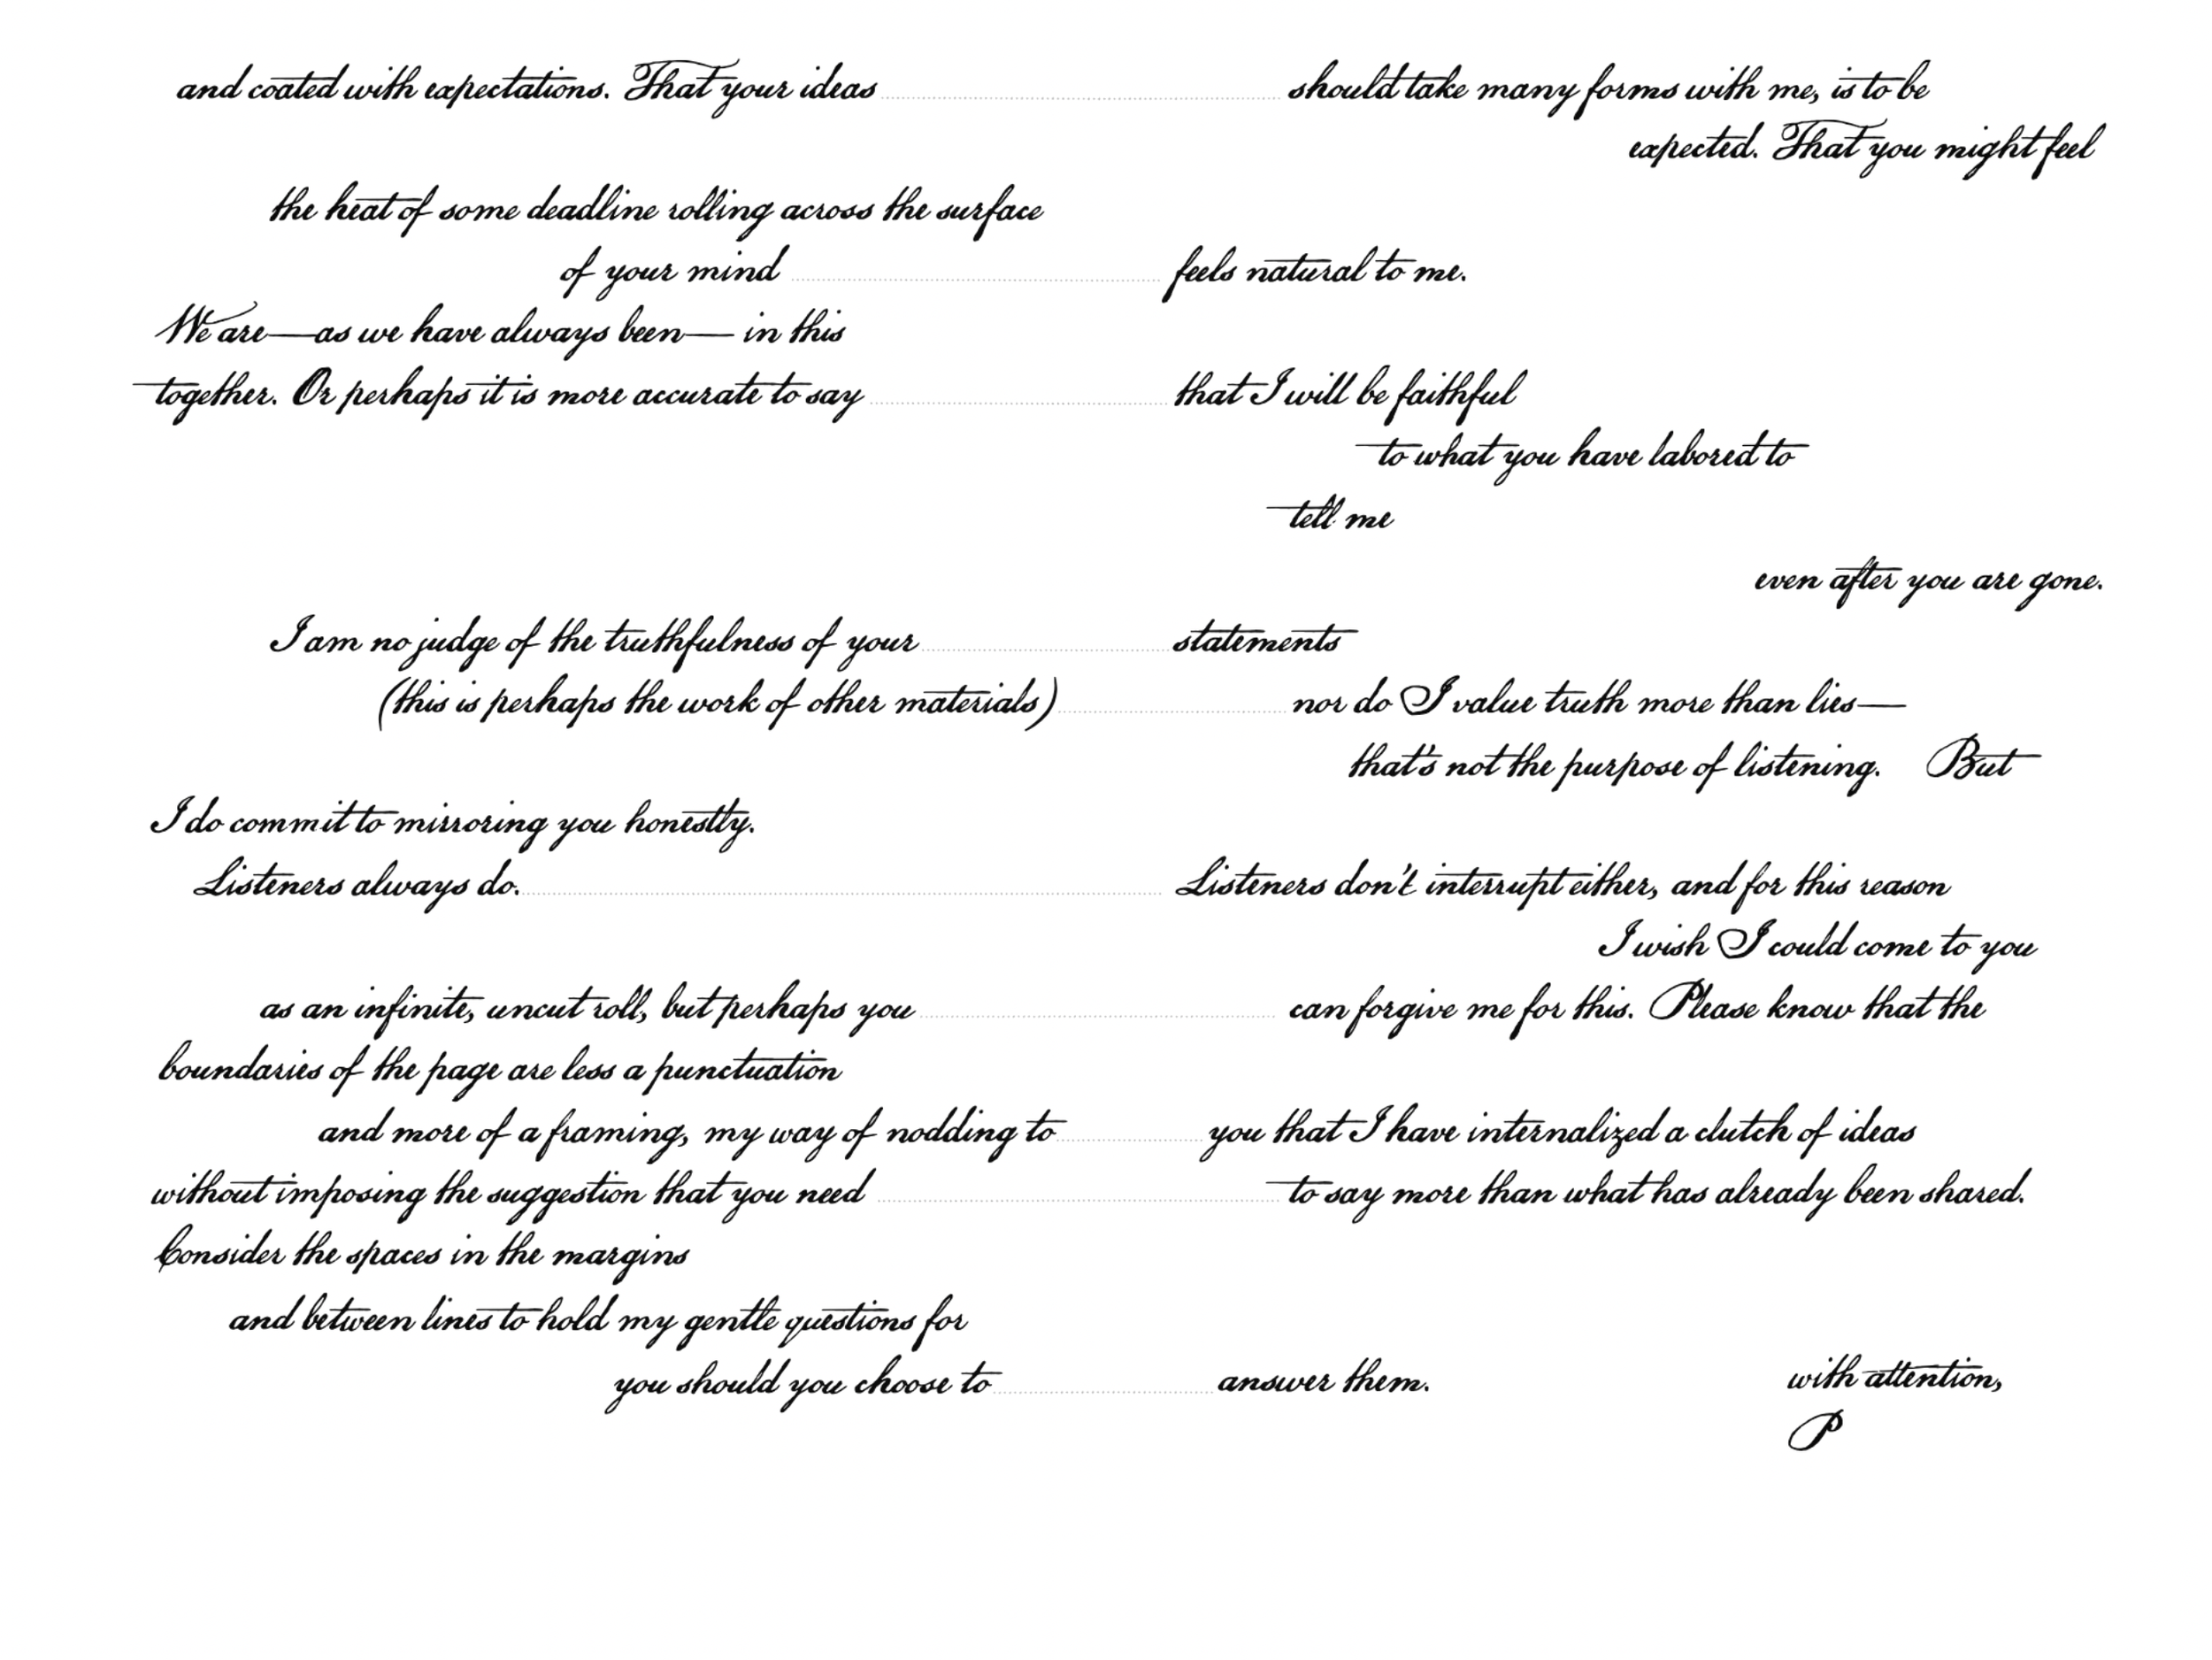 and coated with expectations. That your ideas should take many forms with me, is to be
expected. That you might feel
the heat of some deadline rolling across the surface
of your mind feels natural to me.
We are—as we have always been— in this
together. Or perhaps it is more accurate to say that I will be faithful
to what you have labored to
tell me
even after you are gone.
I am no judge of the truthfulness of your statements
(this is perhaps the work of other materials) nor do I value truth more than lies—
that's not the purpose of listening. But
I do commit to mirroring you honestly.
Listeners always do. Listeners don't interrupt either, and for this reason
I wish I could come to you
as an infinite, uncut roll, but perhaps you can forgive me for this. Please know that the
boundaries of the page are less a punctuation
and more of a framing, my way of nodding to you that I have internalized a clutch of ideas
without imposing the suggestion that you need to say more than what has already been shared.
Consider the spaces in the margins
and between lines to hold my gentle questions for
you should you choose to answer them. with attention,
P